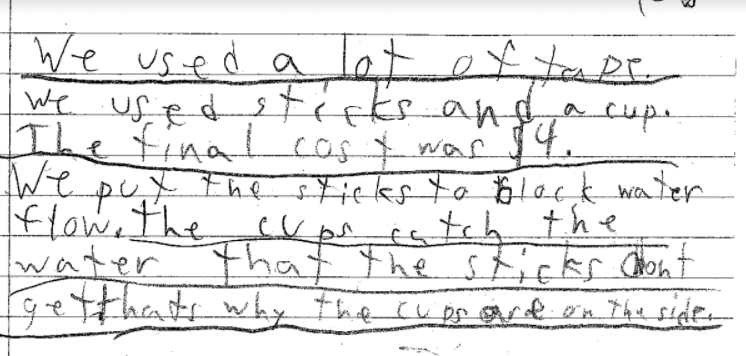 We used a lot of tape.
We used sticks and a cup.
The final cost was $4.
We put the sticks to block water
flow. The cups catch the
water that the sticks dont
get thats why the cups are on the side.